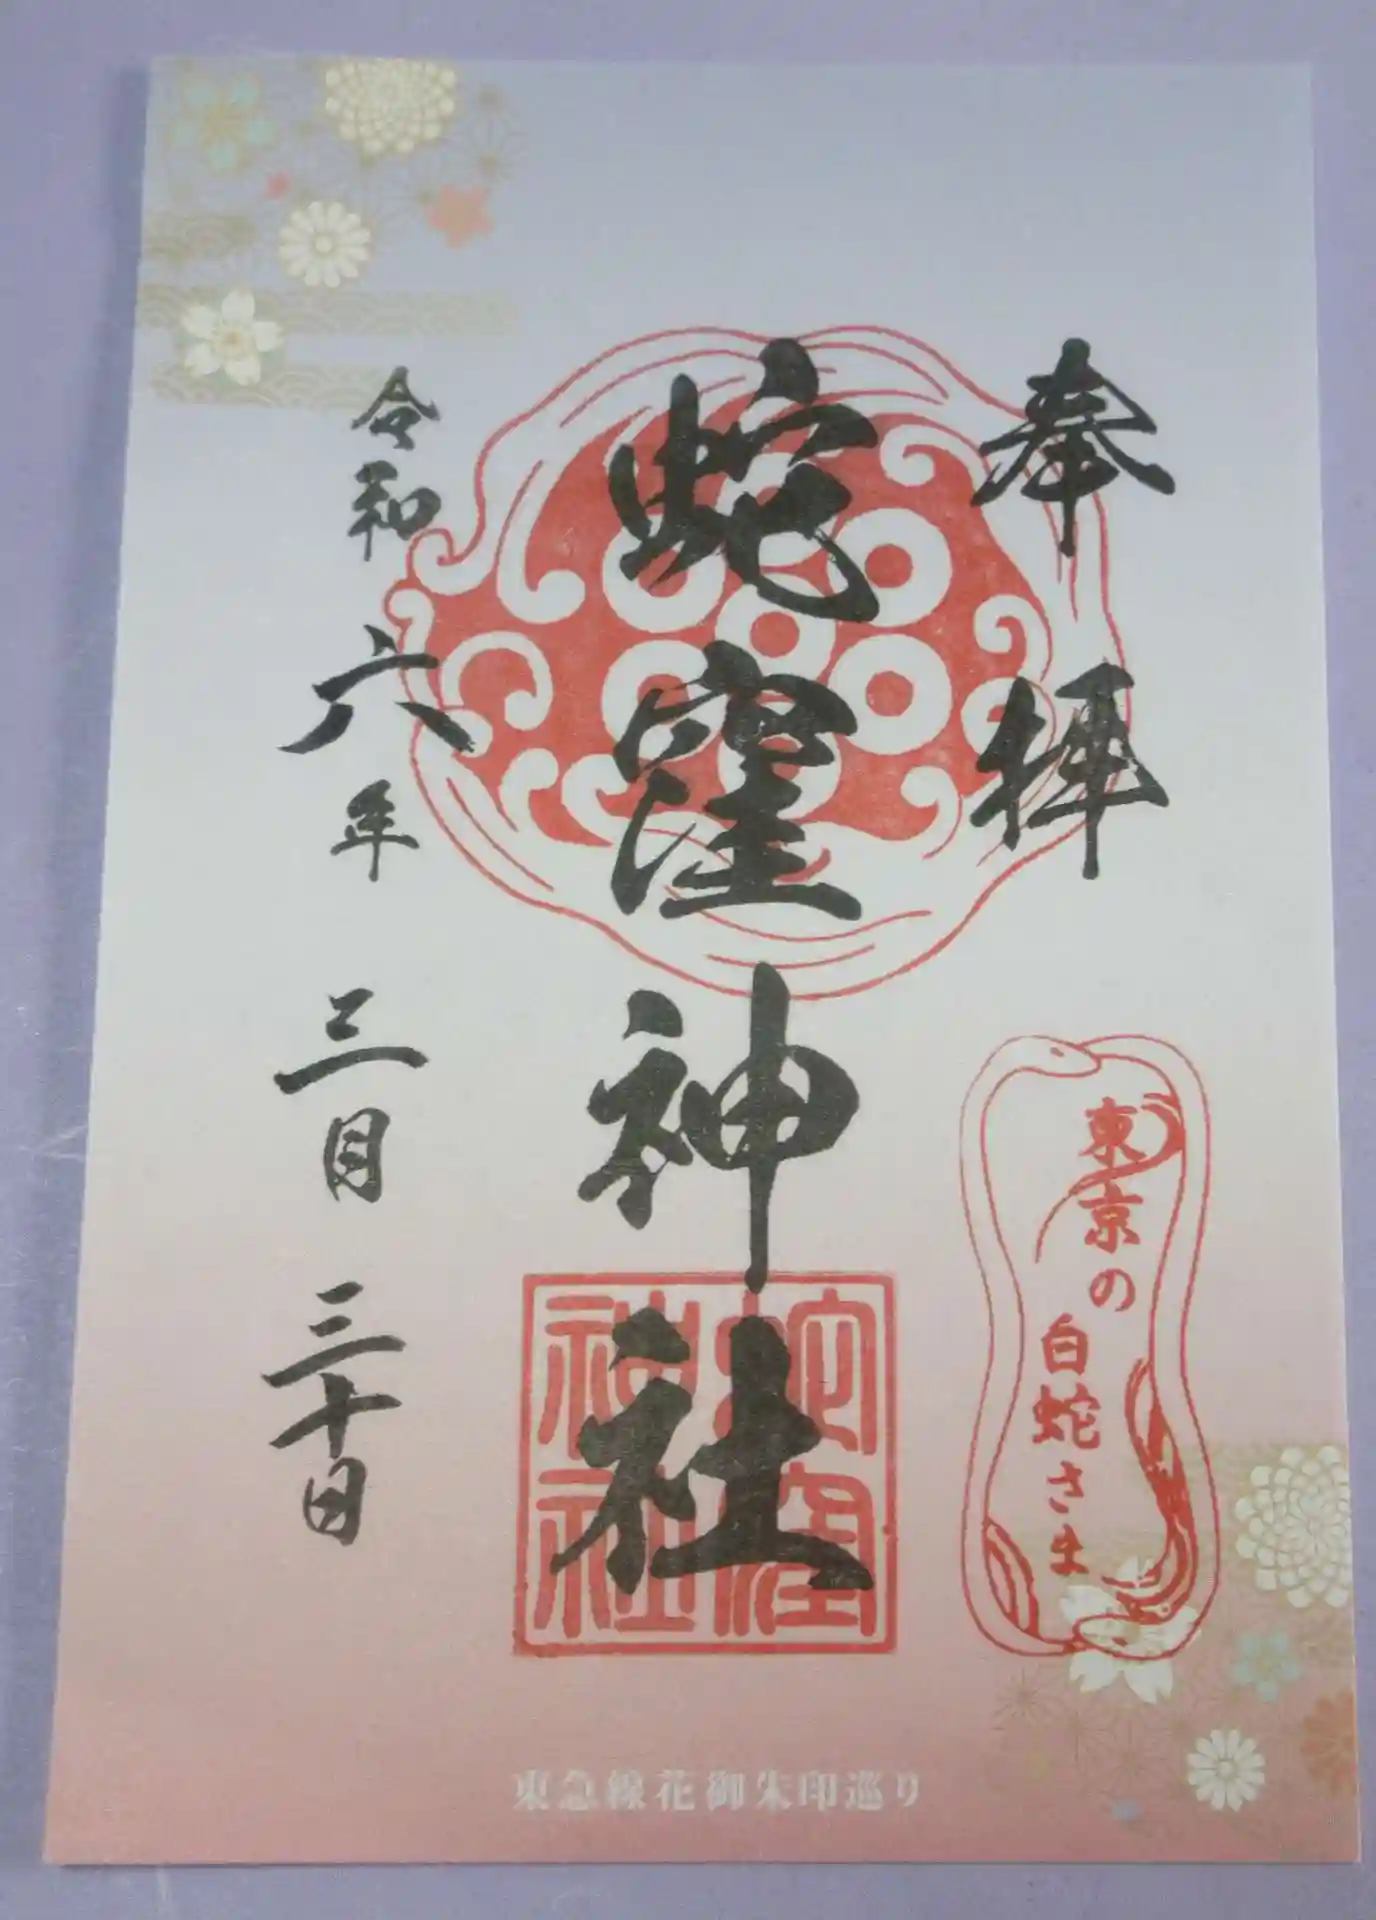 奉拝
東京の
白蛇さま
蛇窪神社
蛇窪
神社
令和六年三月三十日
東急線花御朱印巡り